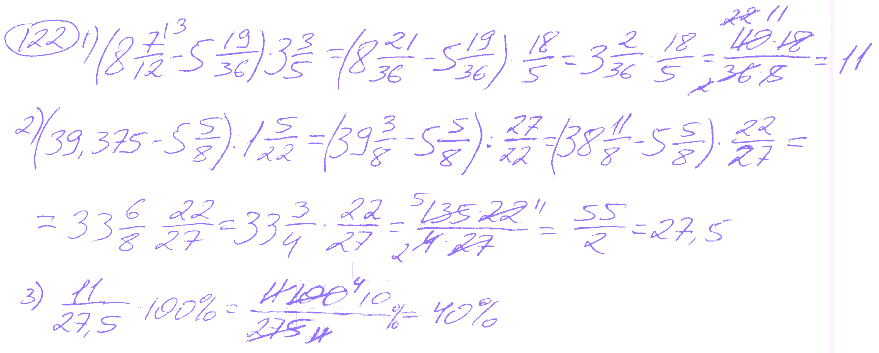 122 1) (8 7/12 ¹³ - 5 19/36) · 3 3/5 = (8 21/36 - 5 19/36) · 18/5 = 3 2/36 · 18/5 = 110·18/36·5 = 11
2) (39,375 - 5 5/8) : 1 5/22 = (39 3/8 - 5 5/8) : 27/22 = (38 11/8 - 5 5/8) · 22/27 =
= 33 6/8 · 22/27 = 33 3/4 · 22/27 = 135·22/4·27 = 55/2 = 27,5
3) 11/27,5 · 100% = 11·100·10/275 % = 40%